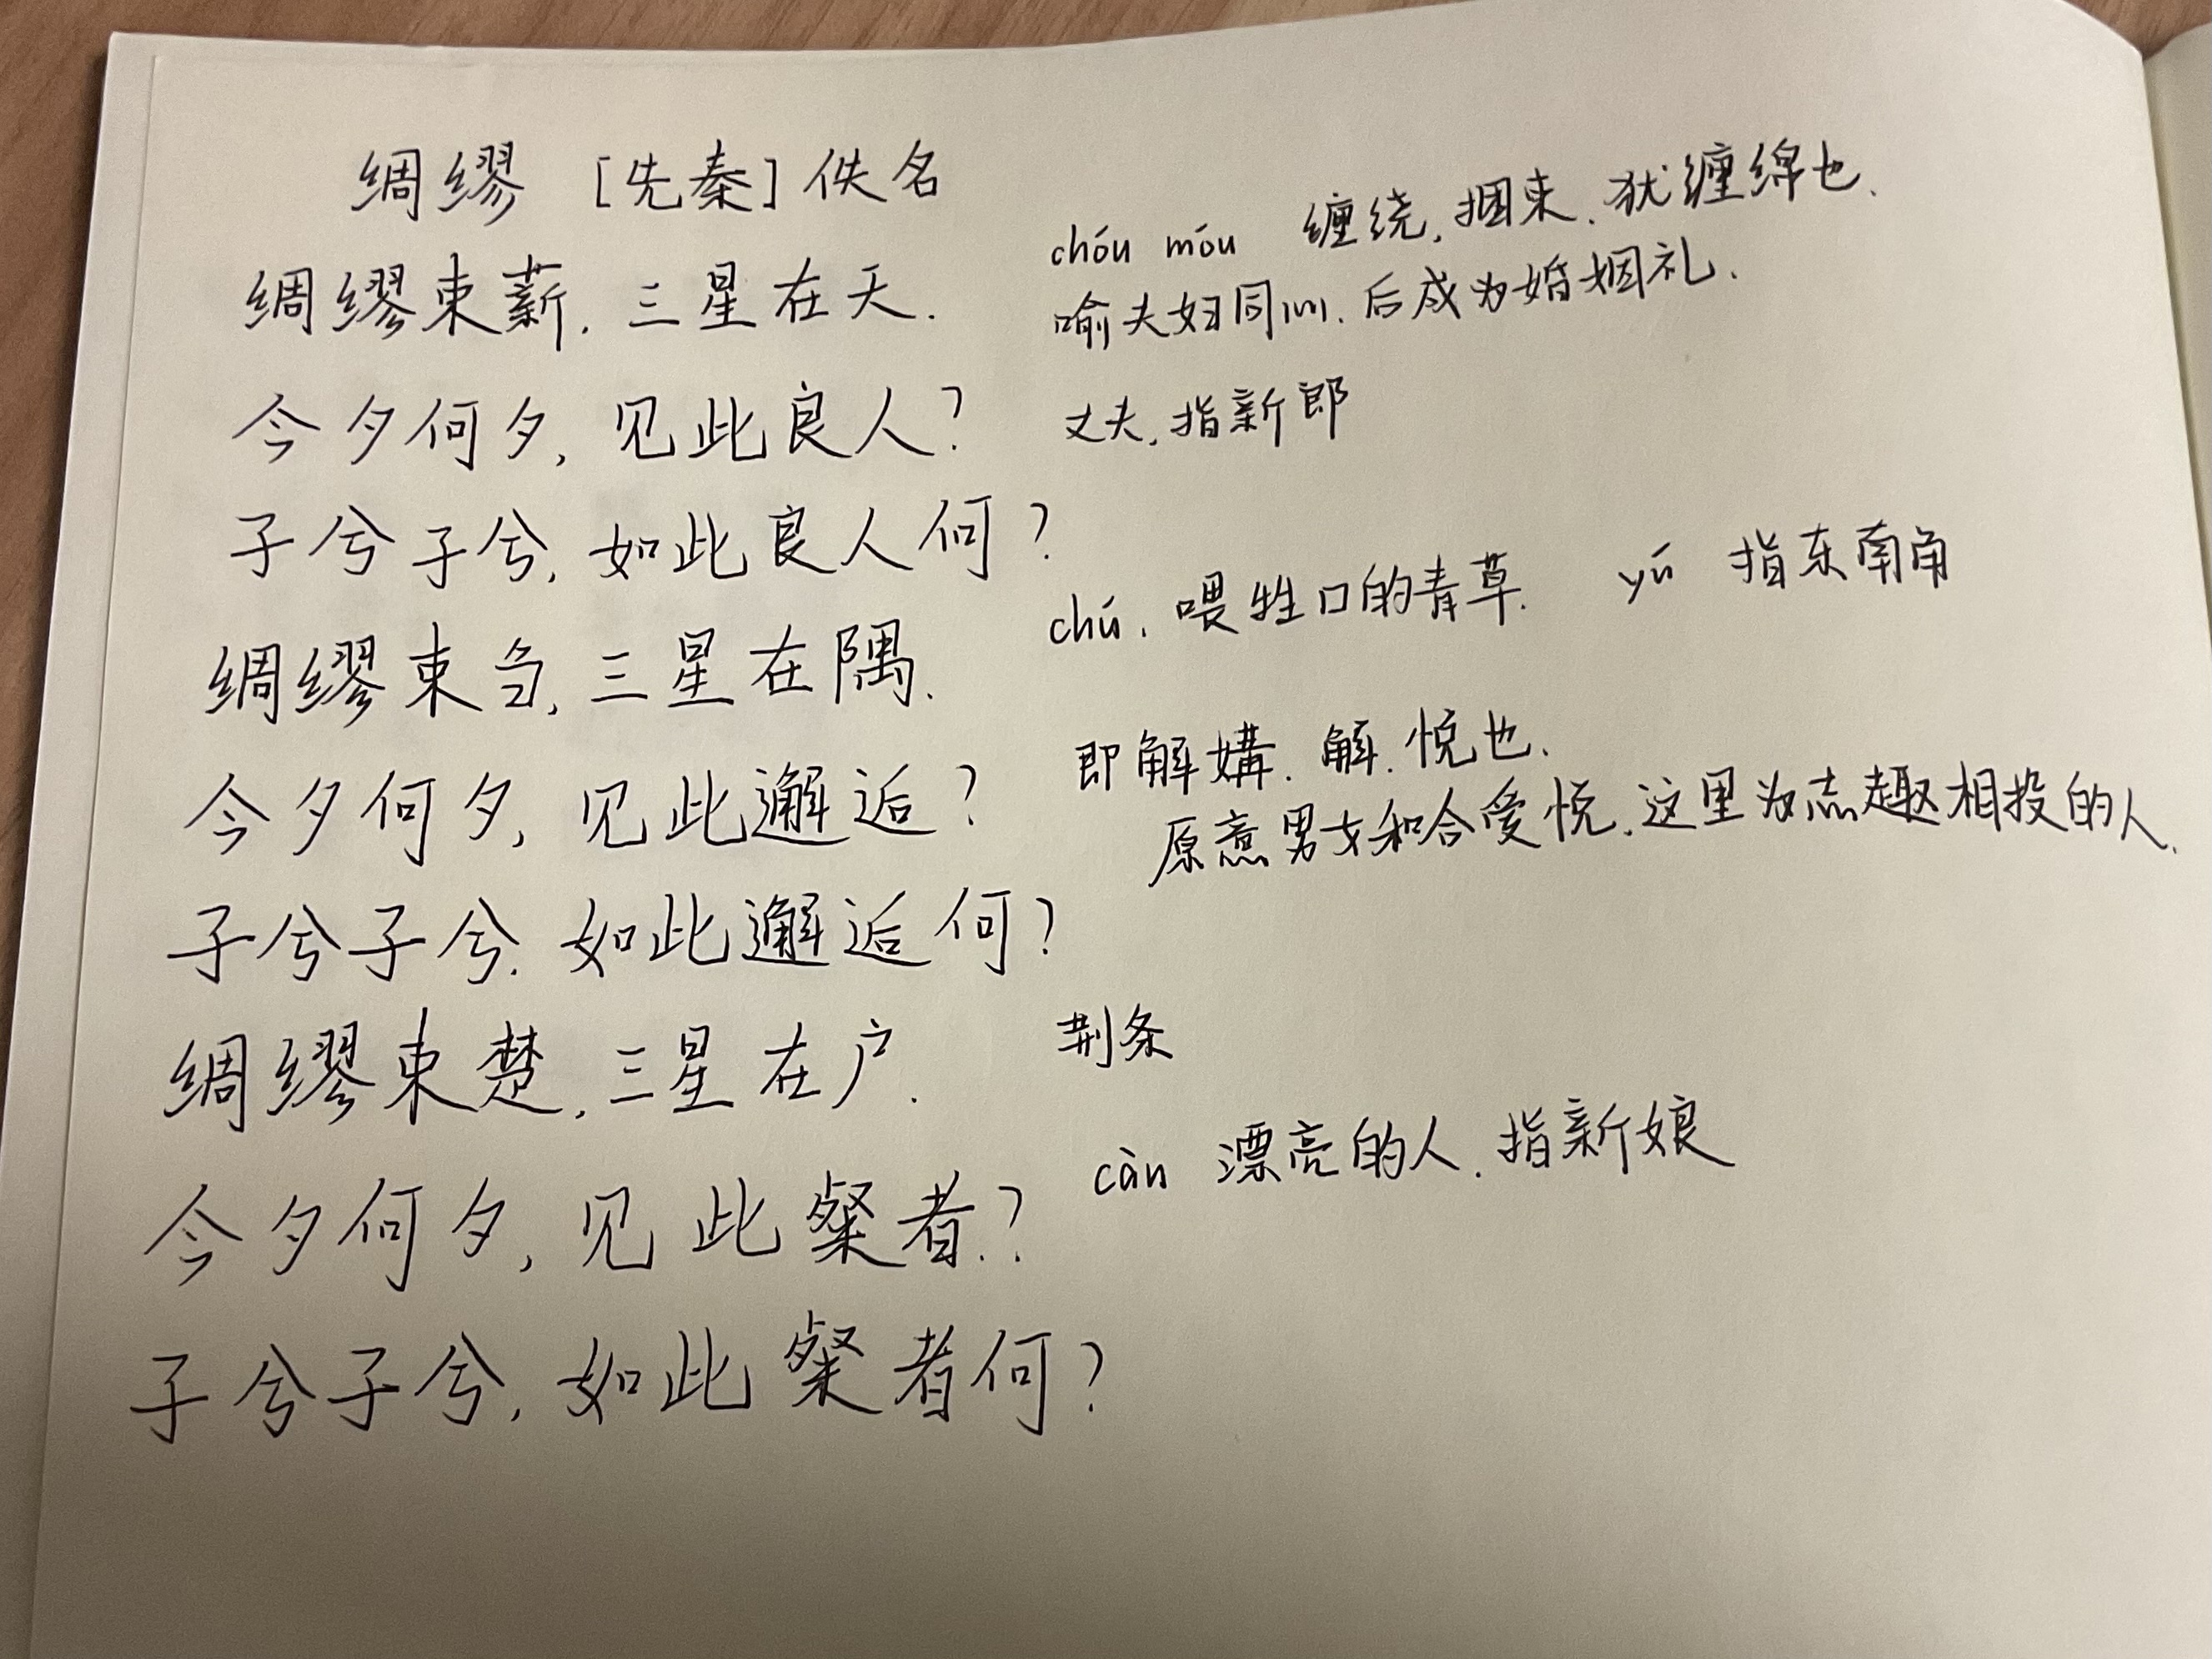 绸缪 [先秦] 佚名
绸缪束薪. 三星在天.
chóu móu 缠绕. 捆束. 犹缠绵也.
喻夫妇同心. 后成为婚姻礼.
今夕何夕, 见此良人?
丈夫. 指新郎
子兮子兮, 如此良人何?
绸缪束刍, 三星在隅.
chú. 喂牲口的青草. yú 指东南角
今夕何夕, 见此邂逅?
即解媾. 解. 悦也.
原意男女和合爱悦. 这里为志趣相投的人.
子兮子兮. 如此邂逅何?
绸缪束楚, 三星在户.
荆条
今夕何夕, 见此粲者.?
càn 漂亮的人. 指新娘
子兮子兮, 如此粲者何?